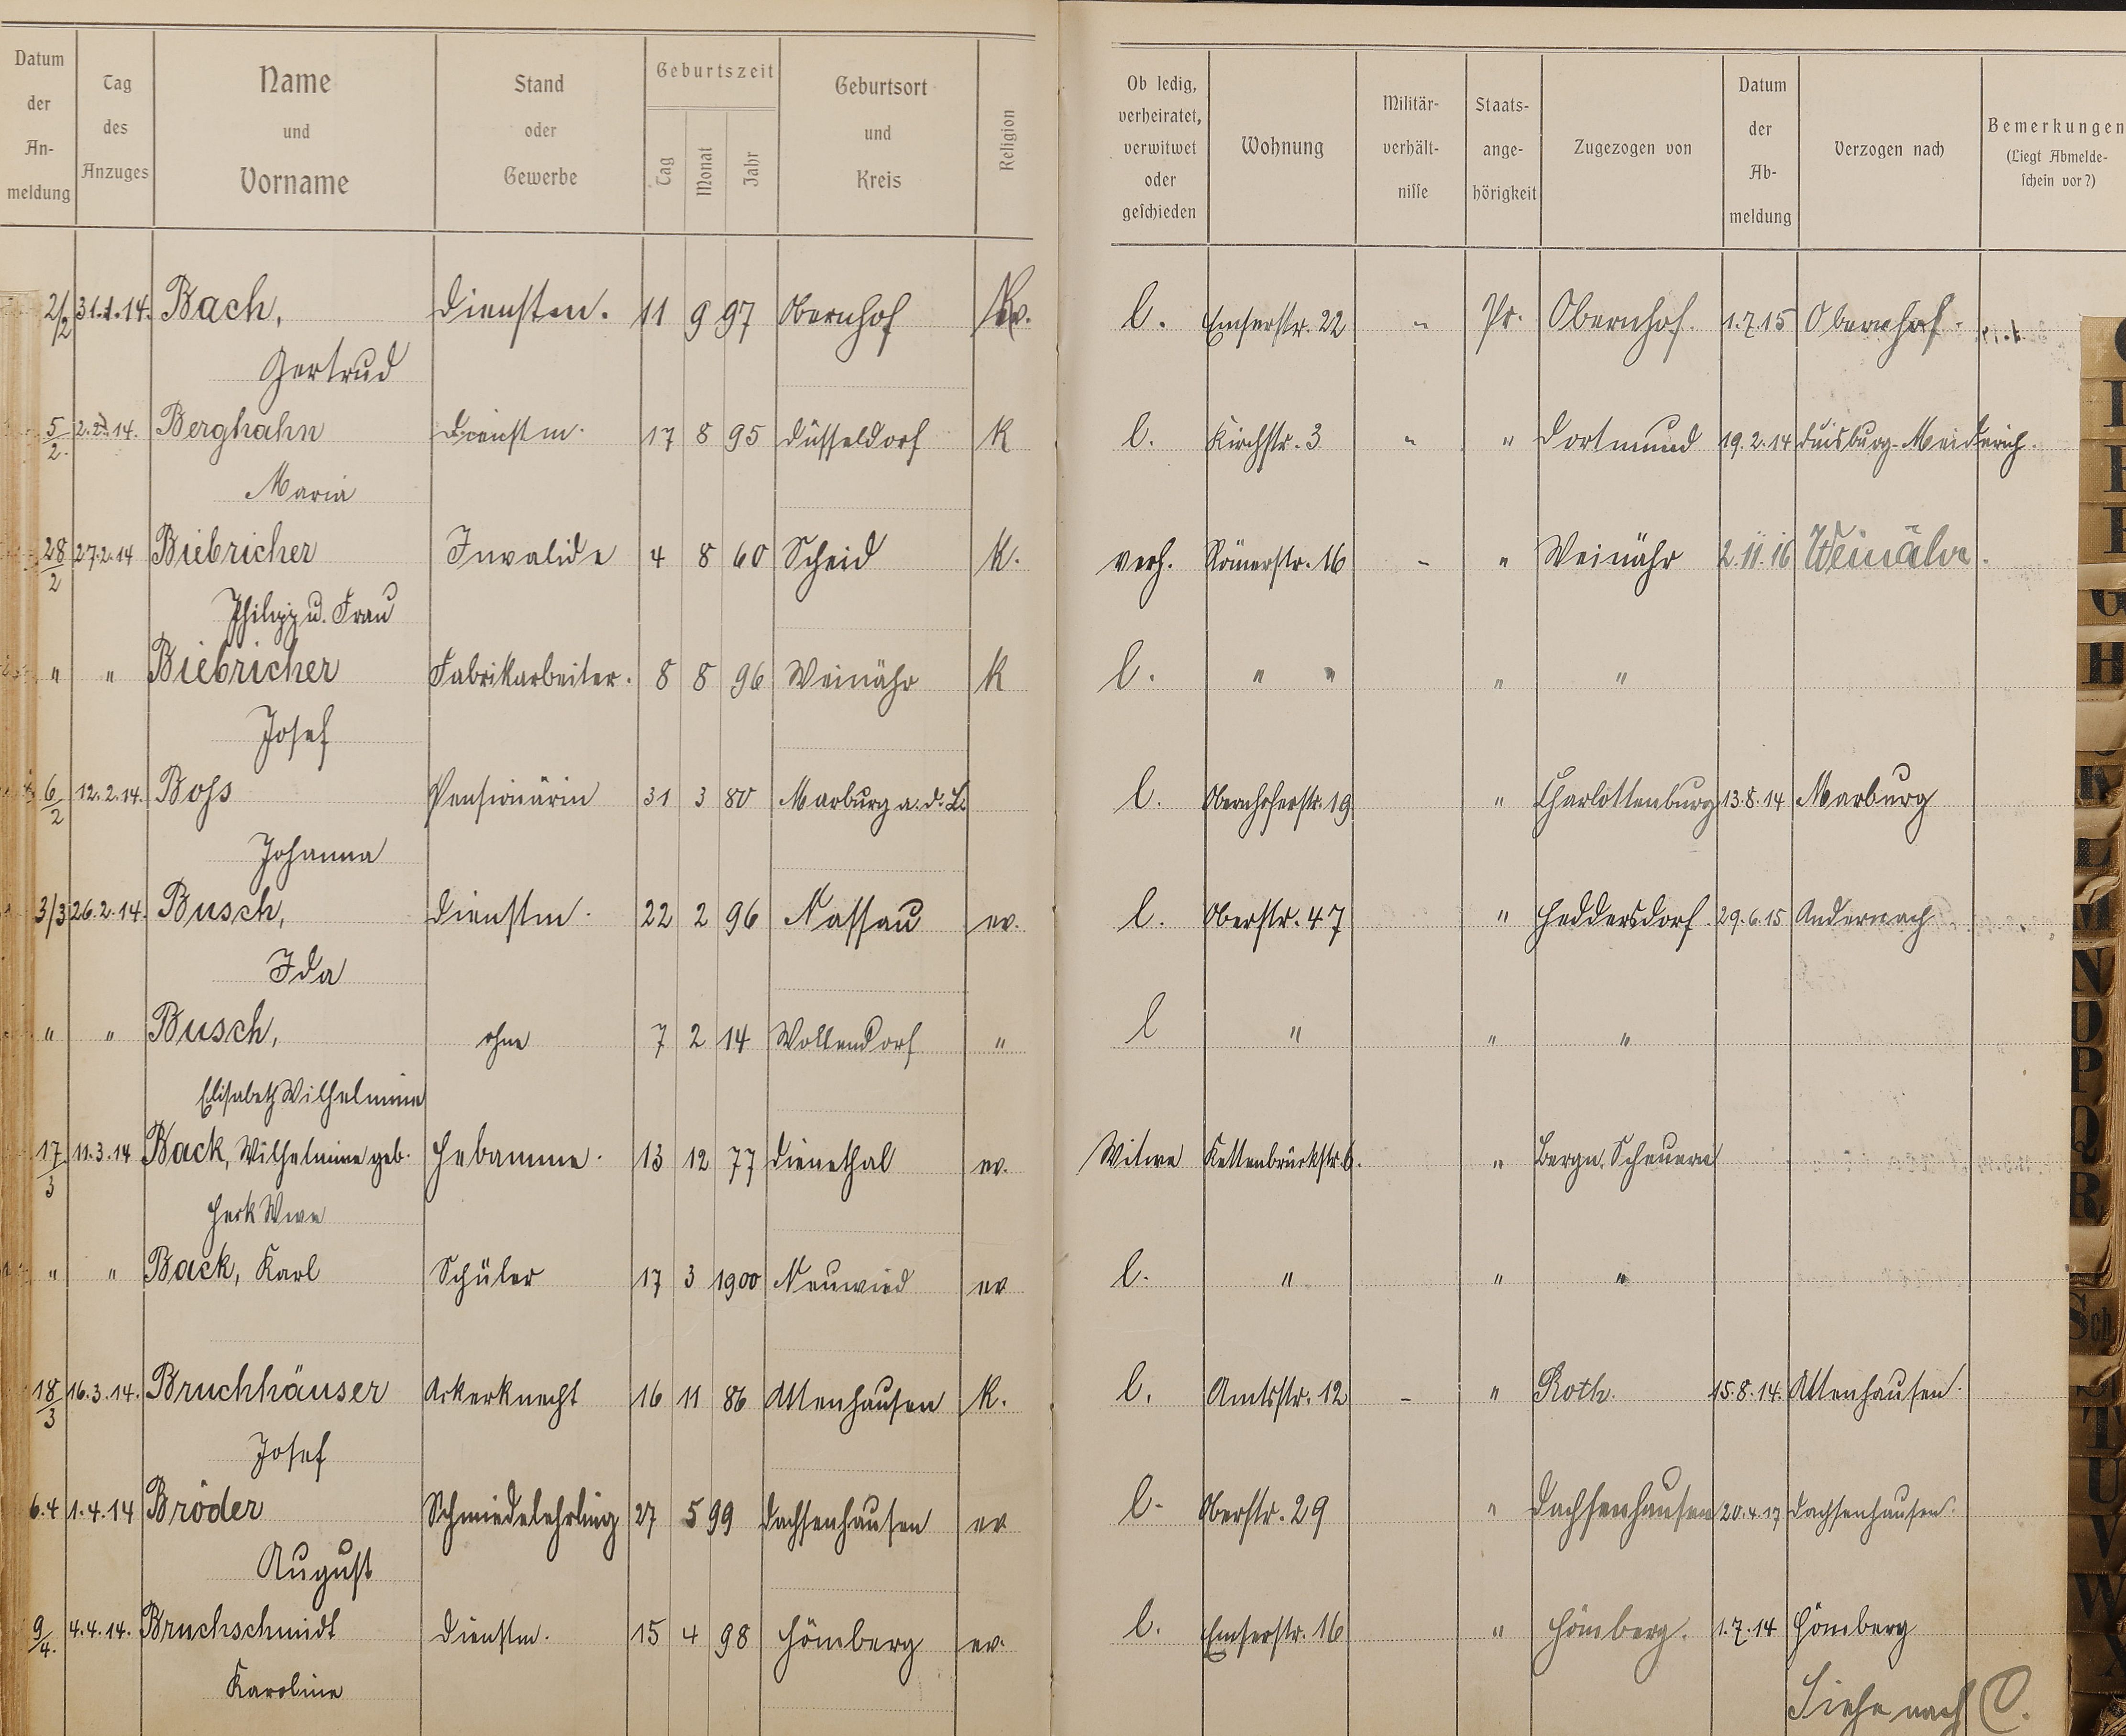 Datum der Anmeldung | Tag des Anzuges | Name und Vorname | Stand oder Gewerbe | Geburtszeit Tag Monat Jahr | Geburtsort und Kreis | Religion | Ob ledig, verheiratet, verwitwet oder geschieden | Wohnung | Militärverhältnisse | Staatsangehörigkeit | Zugezogen von | Datum der Abmeldung | Verzogen nach | Bemerkungen (Liegt Abmeldeschein vor?)
2/2 31.1.14. Bach, Dienstm. 11 9 97 Obernhof Ev. l. Emserstr. 22 " Pr. Obernhof. 1.7.15 Obernhof.
Gertrud
5/2. 2.2.14. Berghahn Dienstm. 17 8 95 Düsseldorf K l. Kirchstr. 3 " " Dortmund 19.2.14 Duisburg-Meiderich.
Maria
28/2 27.2.14 Biebricher Invalide 4 8 60 Scheid K. verh. Römerstr. 16 - " Weinähr 2.11.16 Weinähr.
Philipp u. Frau
" " Biebricher Fabrikarbeiter. 8 8 96 Weinähr K l. " " " "
Josef
6/2 12.2.14. Boß Pensionärin 31 3 80 Marburg a. d. L. l. Obernhoferstr. 19 " Charlottenburg 13.8.14 Marburg
Johanna
3/3 26.2.14. Busch, Dienstm. 22 2 96 Nassau ev. l. Oberstr. 47 " Heddersdorf. 29.6.15 Andernach
Ida
" " Busch, ohne 7 2 14 Wollendorf " l " " "
Elisabeth Wilhelmine
17/3 11.3.14 Back, Wilhelmine geb. Hebamme. 13 12 77 Dienethal ev. Witwe Kettenbrückstr. 6. " Bergn. Scheuern
Herk Wwe
" " Back, Karl Schüler 17 3 1900 Neuwied ev l. " " "
18/3 16.3.14. Bruchhäuser Ackerknecht 16 11 86 Attenhausen K. l. Amtsstr. 12 - " Roth. 15.8.14. Attenhausen.
Josef
6.4 1.4.14 Bröder Schmiedelehrling 27 5 99 Dachsenhausen ev l. Oberstr. 29 " Dachsenhausen 20.4.17 Dachsenhausen.
August
9/4. 4.4.14. Bruchschmidt Dienstm. 15 4 98 Hömberg ev. l. Emserstr. 16 " Hömberg. 1.7.14 Hömberg
Karoline
Siehe nach C.
G
H
K
L
M
N
O
P
Q
R
Sch
T
U
V
W
X